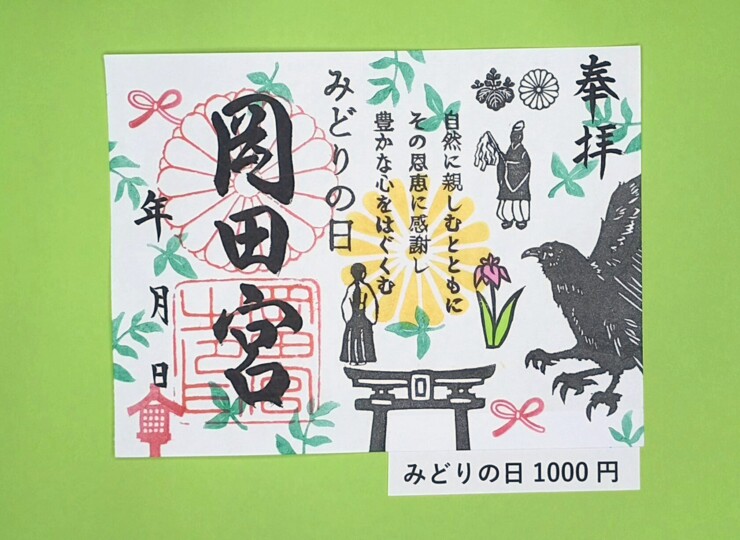 奉拝
自然に親しむとともに
その恩恵に感謝し
豊かな心をはぐくむ
みどりの日
岡田宮
年 月 日
みどりの日 1000 円